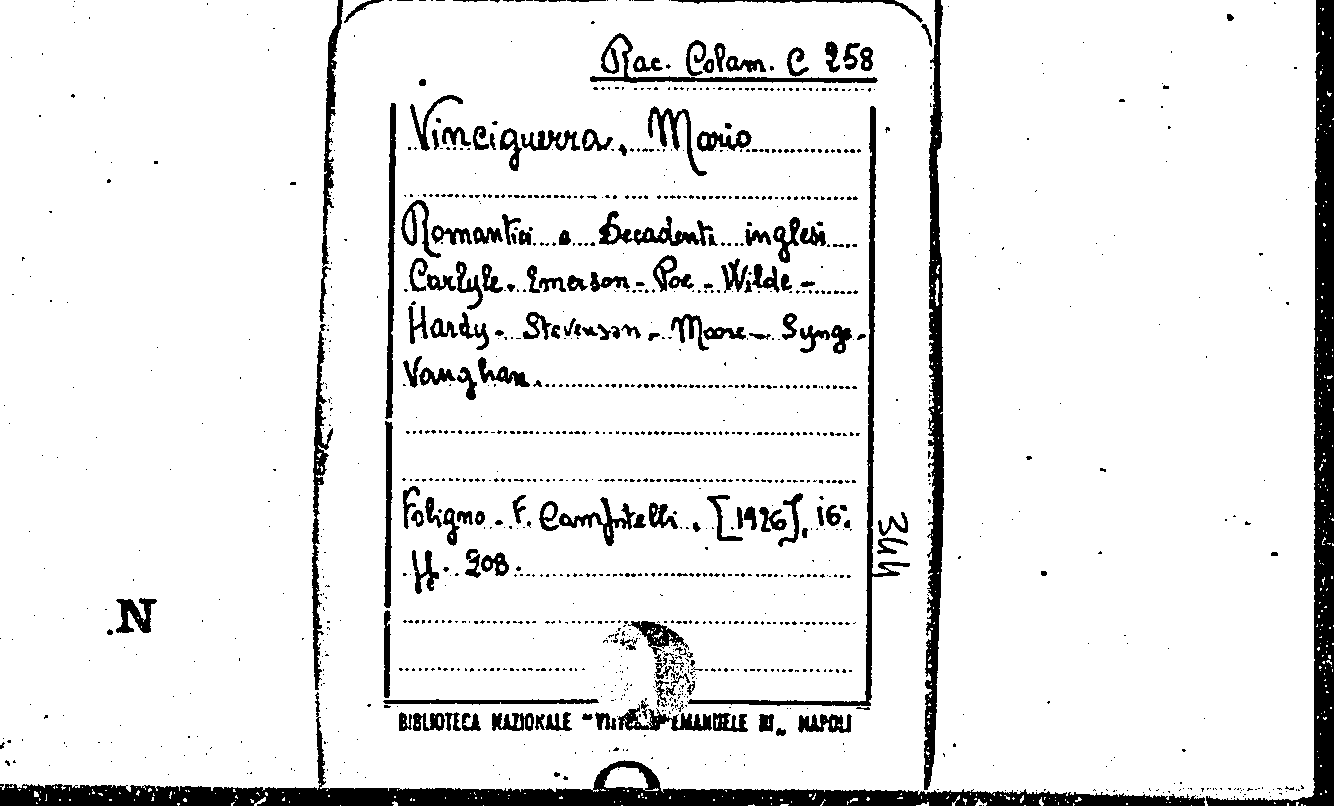 Rac. Colam. C 258
Vinciguerra, Mario
Romantici e Decadenti inglesi
Carlyle - Emerson - Poe - Wilde -
Hardy - Stevenson - Moore - Synge -
Vaughan.
Foligno. F. Campitelli. [1926]. 16°.
pp. 208.
344
N
BIBLIOTECA NAZIONALE "VITTORIO EMANUELE III„ NAPOLI